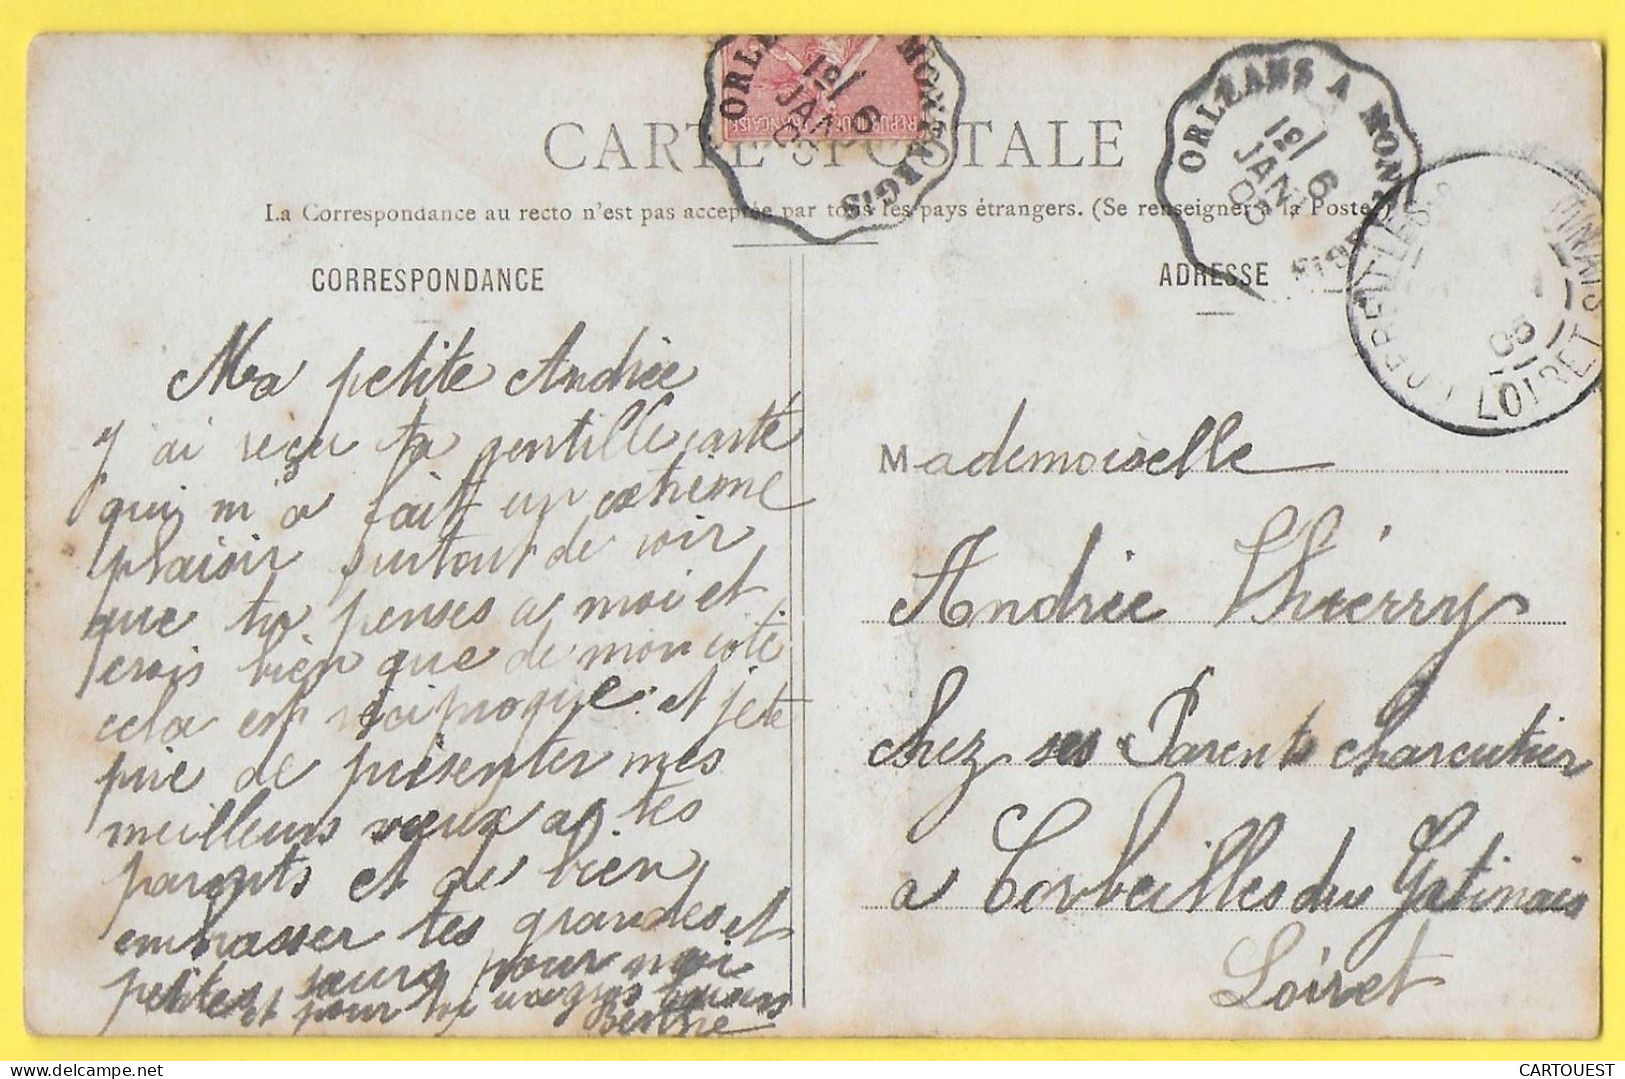 CARTE POSTALE
La Correspondance au recto n'est pas acceptée par tous les pays étrangers. (Se renseigner à la Poste.)
CORRESPONDANCE
Ma petite Andrée
J'ai reçu ta gentille carte
qui m'a fait un extrême
plaisir surtout de voir
que tu penses a moi et
crois bien que de mon coté
cela est réciproque et je te
prie de présenter mes
meilleurs vœux a tes
parents et de bien
embrasser tes grandes et
petites sœurs pour moi
et pour toi
Berthe
ADRESSE
Mademoiselle
Andrée Thierry
chez ses Parents charcutier
a Corbeilles du Gatinais
Loiret
ORLEANS A MONTARGIS
19/ 6
JAN
05
ORLEANS A MON
19/ 6
JAN
05
LOIRET
05
REPUBLIQUE FRANCAISE
CARTOUEST